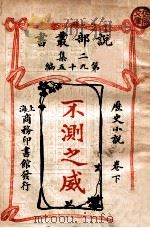 說部叢書
二集
第九十五編
歷史小說 卷下
不測之威
上海
商務印書館發行